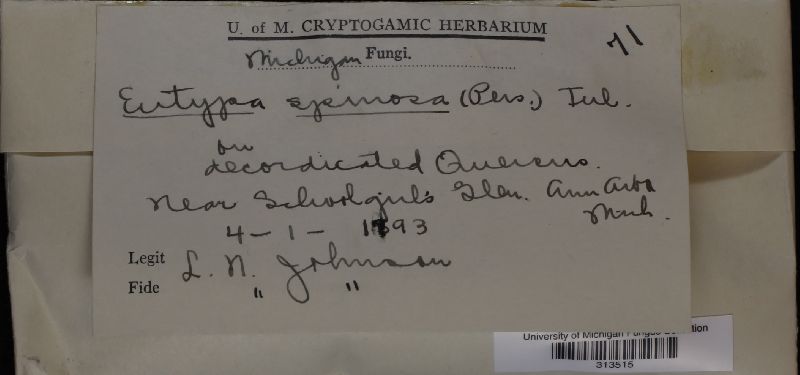 U. of M. CRYPTOGAMIC HERBARIUM
71
Michigan Fungi.
Eutypa spinosa (Pers.) Tul.
on
decordicated Quercus.
near Schoolgirl's Glen. Ann Arbor
Mich.
4-1-1893
Legit L. N. Johnson
Fide " "
University of Michigan Fungus
313515